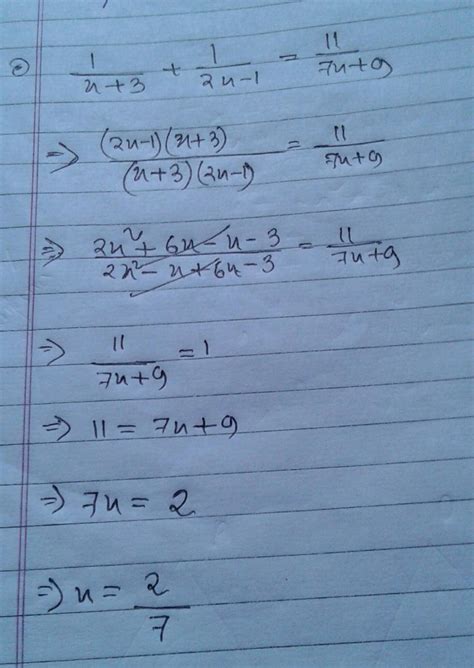 1/(x+3) + 1/(2x-1) = 11/(7x+9)
⇒ (2x-1)(x+3)/(x+3)(2x-1) = 11/(7x+9)
⇒ (2x²+6x-x-3)/(2x²-x+6x-3) = 11/(7x+9)
⇒ 11/(7x+9) = 1
⇒ 11 = 7x+9
⇒ 7x = 2
⇒ x = 2/7